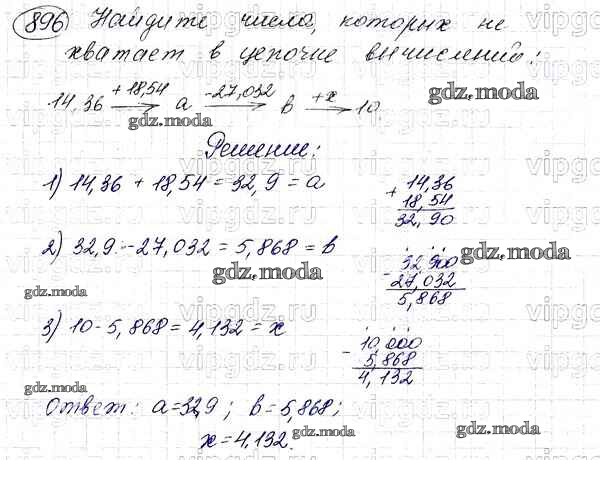 896 Найдите числа, которых не
хватает в цепочке вычислений:
14,36 +18,54→ a -27,032→ b +x→ 10
gdz.moda
gdz.moda
Решение:
1) 14,36 + 18,54 = 32,9 = a
+ 14,36
18,54
32,90
2) 32,9 - 27,032 = 5,868 = b
- 32,900
27,032
5,868
gdz.moda
gdz.moda
gdz.moda
3) 10 - 5,868 = 4,132 = x
- 10,000
5,868
4,132
gdz.moda
Ответ: a = 32,9; b = 5,868;
x = 4,132.
gdz.moda
gdz.moda
vipgdz.ru